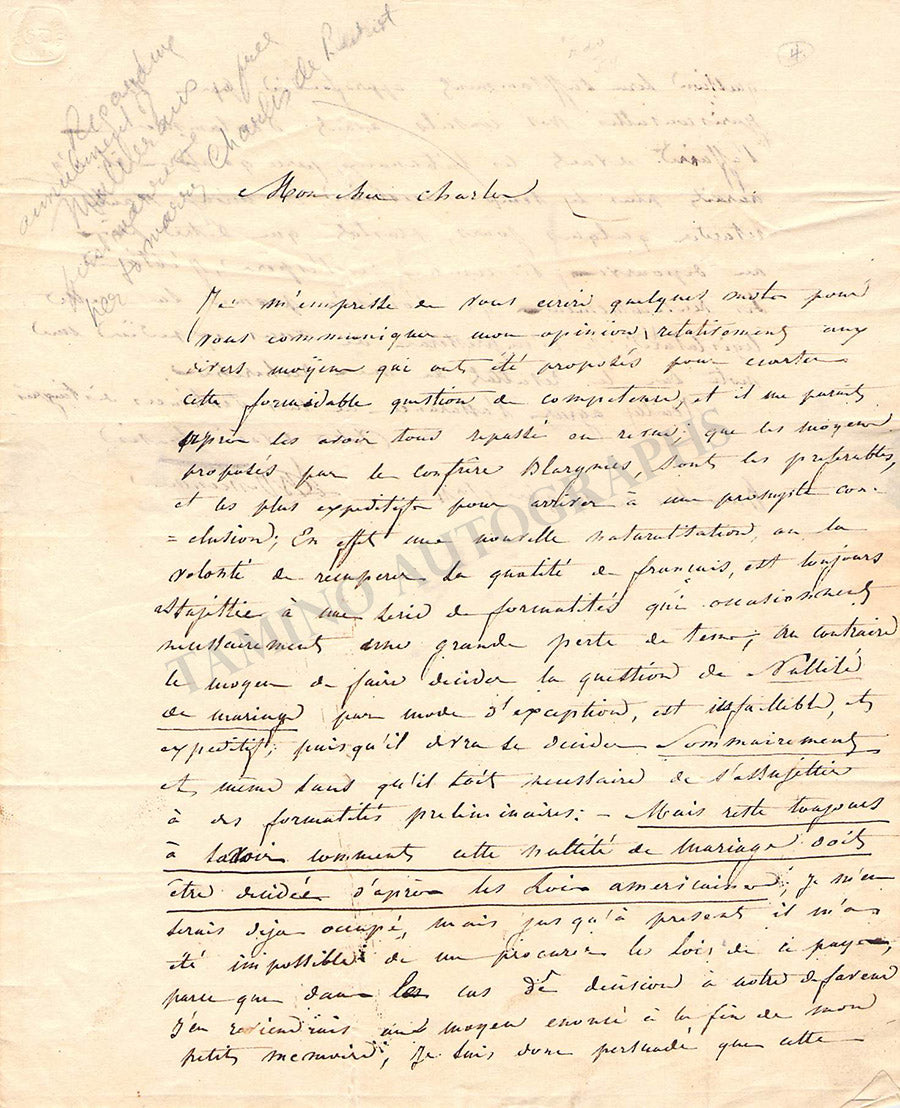 4
Regarding
annulment of
Malibran's
first marriage free
her to marry Charles de Beriot
Mon cher Charles
Je m'empresse de vous ecrire quelques mots pour
vous communiquer mon opinion relativement aux
divers moÿens qui ont été proposés pour ecarter
cette formidable question de competence, et il me parait
après les avoir tous repassé en revue; que les moyens
proposés par le confrère Blargnies, sont les preferables,
et les plus expeditifs pour arriver à une prompte con-
=clusion; En effet une nouvelle naturalisation, ou la
volonté de recuperer la qualité de français, est toujours
assujettie à une serie de formalités qui occasionnent
necessairement une grande perte de tems; Au contraire
le moyen de faire decider la question de Nullité
de mariage par mode d'exception, est infaillible, et
expeditif; puisqu'il devra se decider Sommairement
et même sans qu'il soit necessaire de s'assujettir
à des formalités preliminaires: - Mais reste toujours
à savoir comment cette nullité de mariage doit
être decidée d'après les Lois americaines; Je m'en
serais deja occupé, mais jusqu'à present il m'a
été impossible de me procurer les Lois de ce pays,
parce que dans les cas de decision a notre defaveur
J'en reviendrais au moyen enoncé à la fin de mon
petit memoire; Je suis donc persuadé que cette
TAMINO AUTOGRAPHS